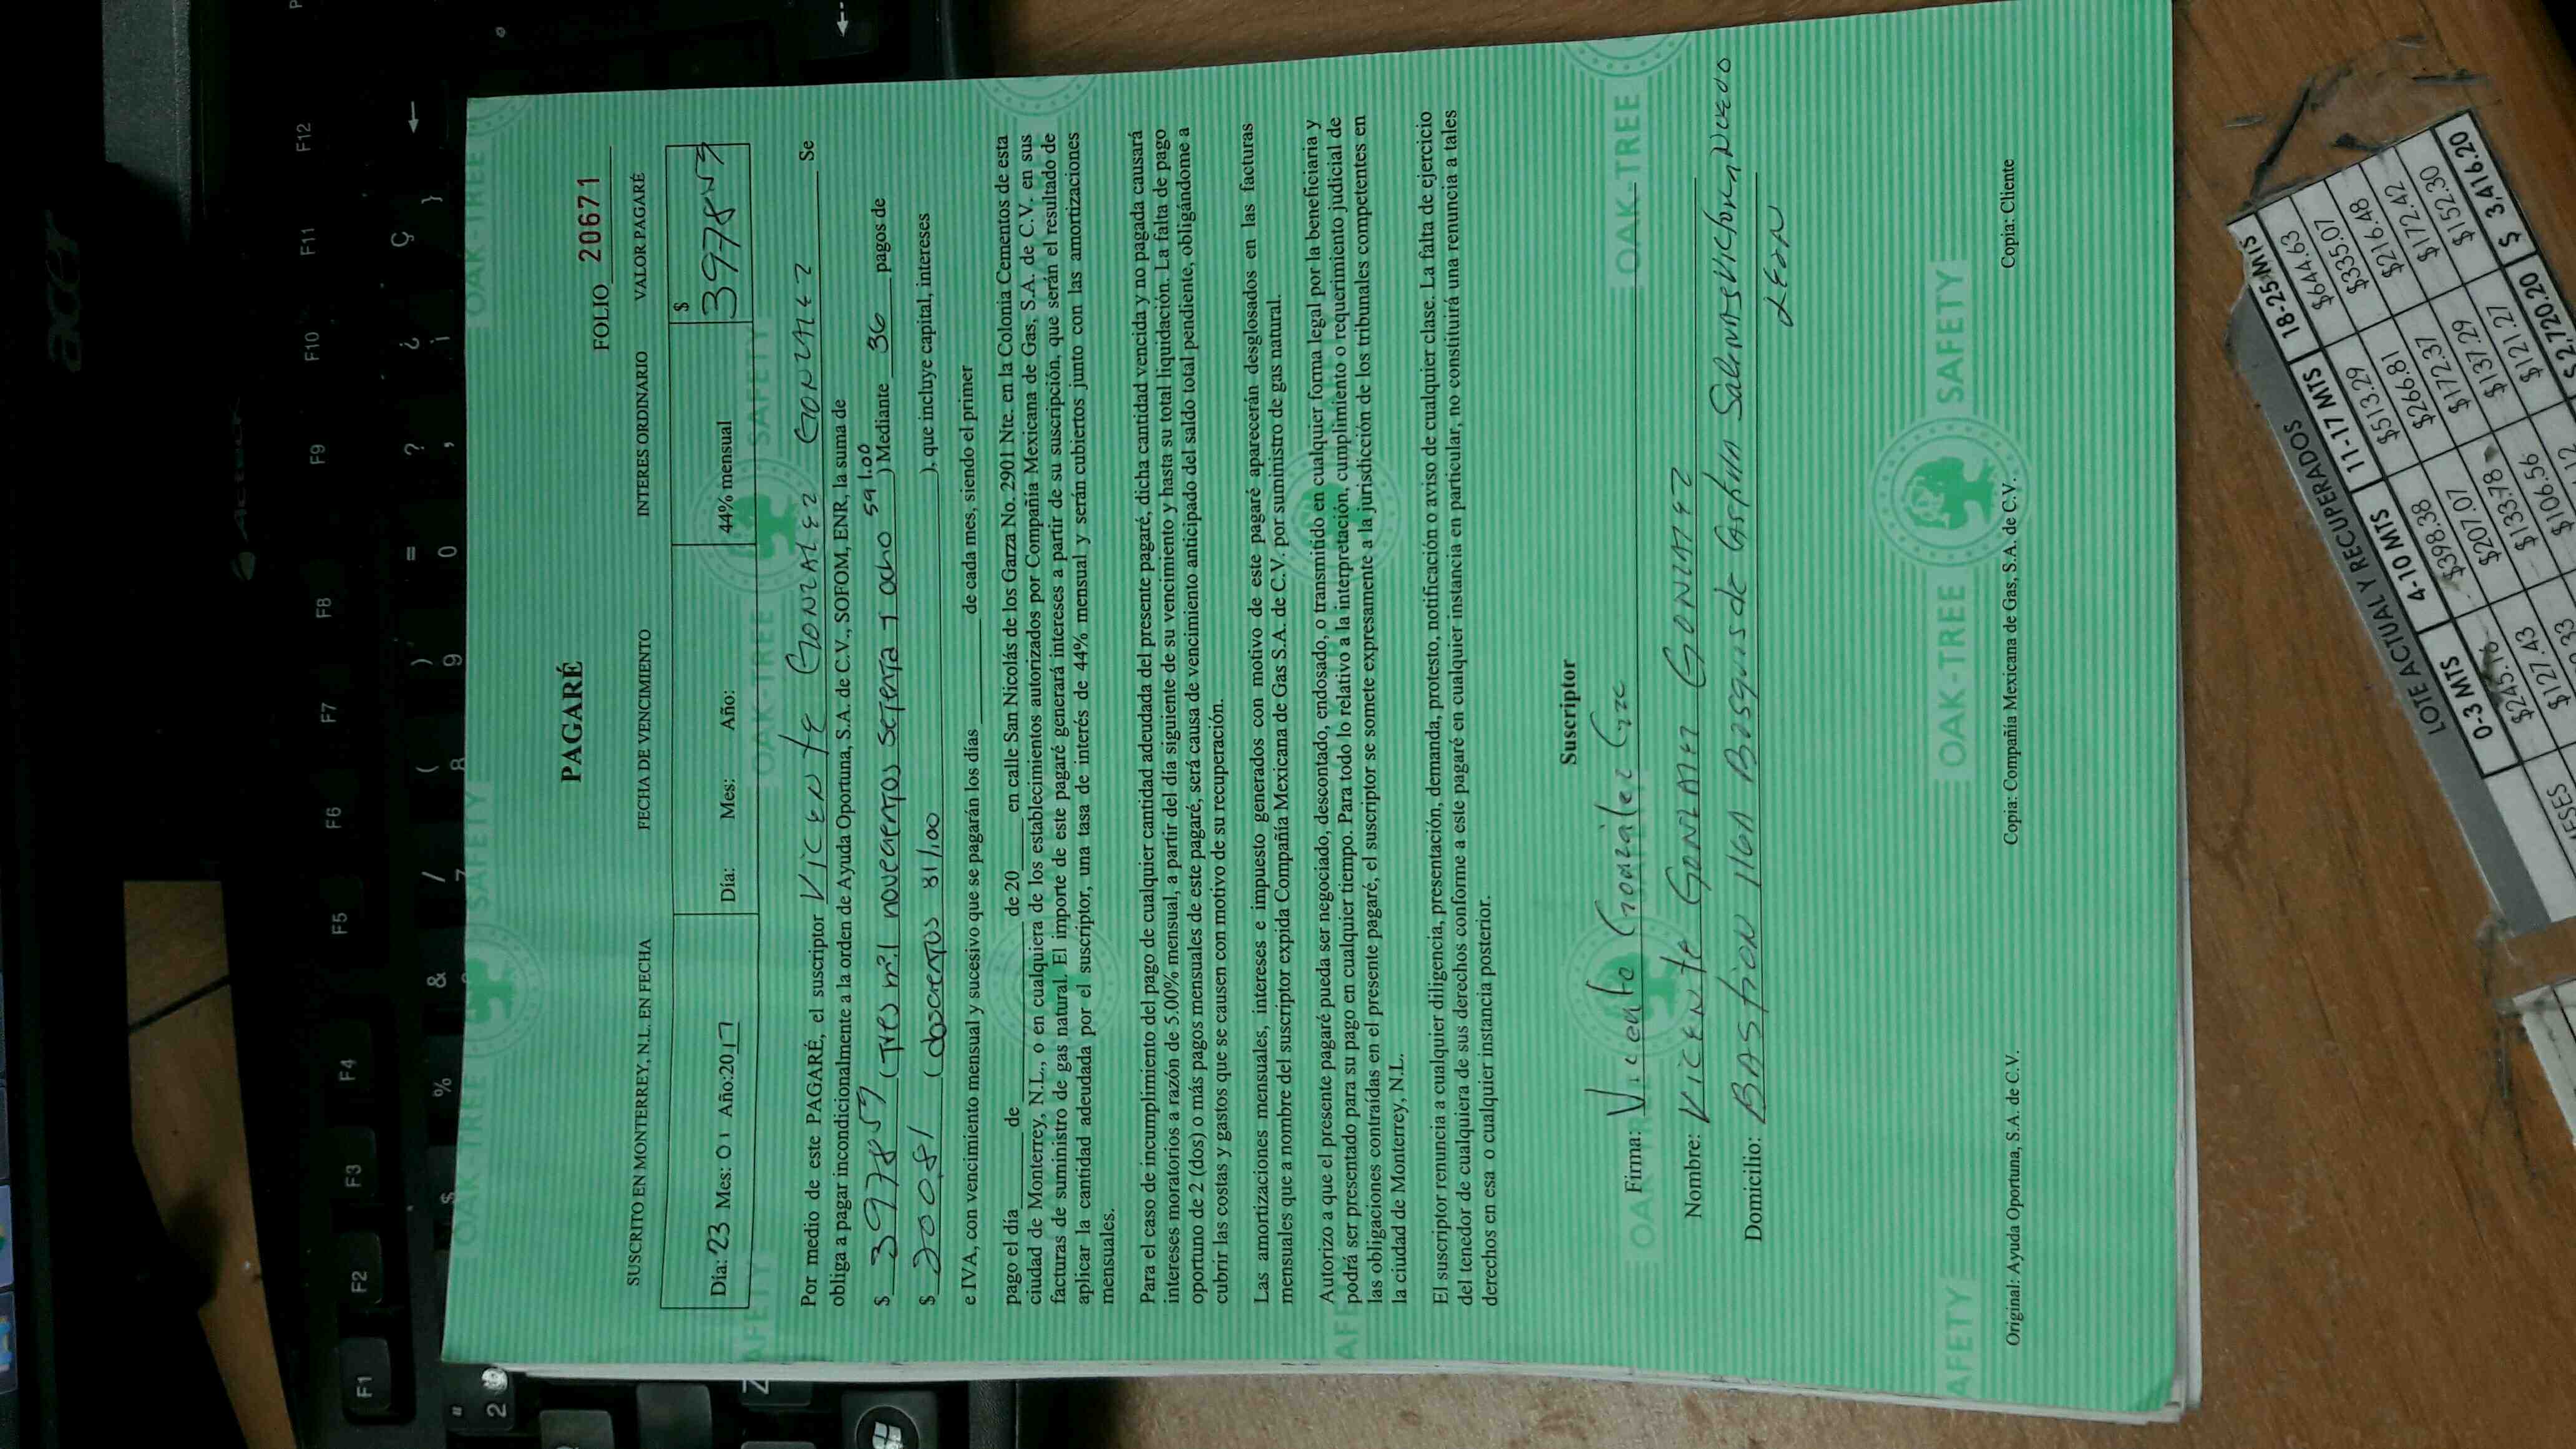 PAGARÉ
FOLIO 20671
SUSCRITO EN MONTERREY, N.L. EN FECHA FECHA DE VENCIMIENTO INTERES ORDINARIO VALOR PAGARÉ
Día: 23 Mes: 01 Año:2017 Día: Mes: Año: 44% mensual $ 397859
Por medio de este PAGARÉ, el suscriptor VICENTE GONZALEZ GONZALEZ Se
obliga a pagar incondicionalmente a la orden de Ayuda Oportuna, S.A. de C.V., SOFOM, ENR, la suma de
$ 397859 (Tres mil novecientos setenta y ocho 59/.00) Mediante 36 pagos de
$ 200.81 (doscientos 81/.00), que incluye capital, intereses
e IVA, con vencimiento mensual y sucesivo que se pagarán los días de cada mes, siendo el primer
pago el día de de 20 en calle San Nicolás de los Garza No. 2901 Nte. en la Colonia Cementos de esta
ciudad de Monterrey, N.L., o en cualquiera de los establecimientos autorizados por Compañía Mexicana de Gas, S.A. de C.V. en sus
facturas de suministro de gas natural. El importe de este pagaré generará intereses a partir de su suscripción, que serán el resultado de
aplicar la cantidad adeudada por el suscriptor, una tasa de interés de 44% mensual y serán cubiertos junto con las amortizaciones
mensuales.
Para el caso de incumplimiento del pago de cualquier cantidad adeudada del presente pagaré, dicha cantidad vencida y no pagada causará
intereses moratorios a razón de 5.00% mensual, a partir del día siguiente de su vencimiento y hasta su total liquidación. La falta de pago
oportuno de 2 (dos) o más pagos mensuales de este pagaré, será causa de vencimiento anticipado del saldo total pendiente, obligándome a
cubrir las costas y gastos que se causen con motivo de su recuperación.
Las amortizaciones mensuales, intereses e impuesto generados con motivo de este pagaré aparecerán desglosados en las facturas
mensuales que a nombre del suscriptor expida Compañía Mexicana de Gas S.A. de C.V. por suministro de gas natural.
Autorizo a que el presente pagaré pueda ser negociado, descontado, endosado, o transmitido en cualquier forma legal por la beneficiaria y
podrá ser presentado para su pago en cualquier tiempo. Para todo lo relativo a la interpretación, cumplimiento o requerimiento judicial de
las obligaciones contraídas en el presente pagaré, el suscriptor se somete expresamente a la jurisdicción de los tribunales competentes en
la ciudad de Monterrey, N.L.
El suscriptor renuncia a cualquier diligencia, presentación, demanda, protesto, notificación o aviso de cualquier clase. La falta de ejercicio
del tenedor de cualquiera de sus derechos conforme a este pagaré en cualquier instancia en particular, no constituirá una renuncia a tales
derechos en esa o cualquier instancia posterior.
Suscriptor
Firma: Vicente Gonzalez Gzz
Nombre: VICENTE GONZALEZ GONZALEZ
Domicilio: BASTION 116A Bosques de Salinas Victoria NUEVO
LEON
Original: Ayuda Oportuna, S.A. de C.V. Copia: Compañía Mexicana de Gas, S.A. de C.V. Copia: Cliente
OAK-TREE SAFETY
acer
LOTE ACTUAL Y RECUPERADOS
0-3 MTS 4-10 MTS 11-17 MTS 18-25 MTS
$245.16 $398.38 $513.29 $644.63
$127.43 $207.07 $266.81 $335.07
$133.78 $172.37 $216.48
$106.56 $137.29 $172.42
$121.27 $152.30
$ 2,720.20 $ 3,416.20
F1 F2 F3 F4 F5 F6 F7 F8 F9 F10 F11 F12